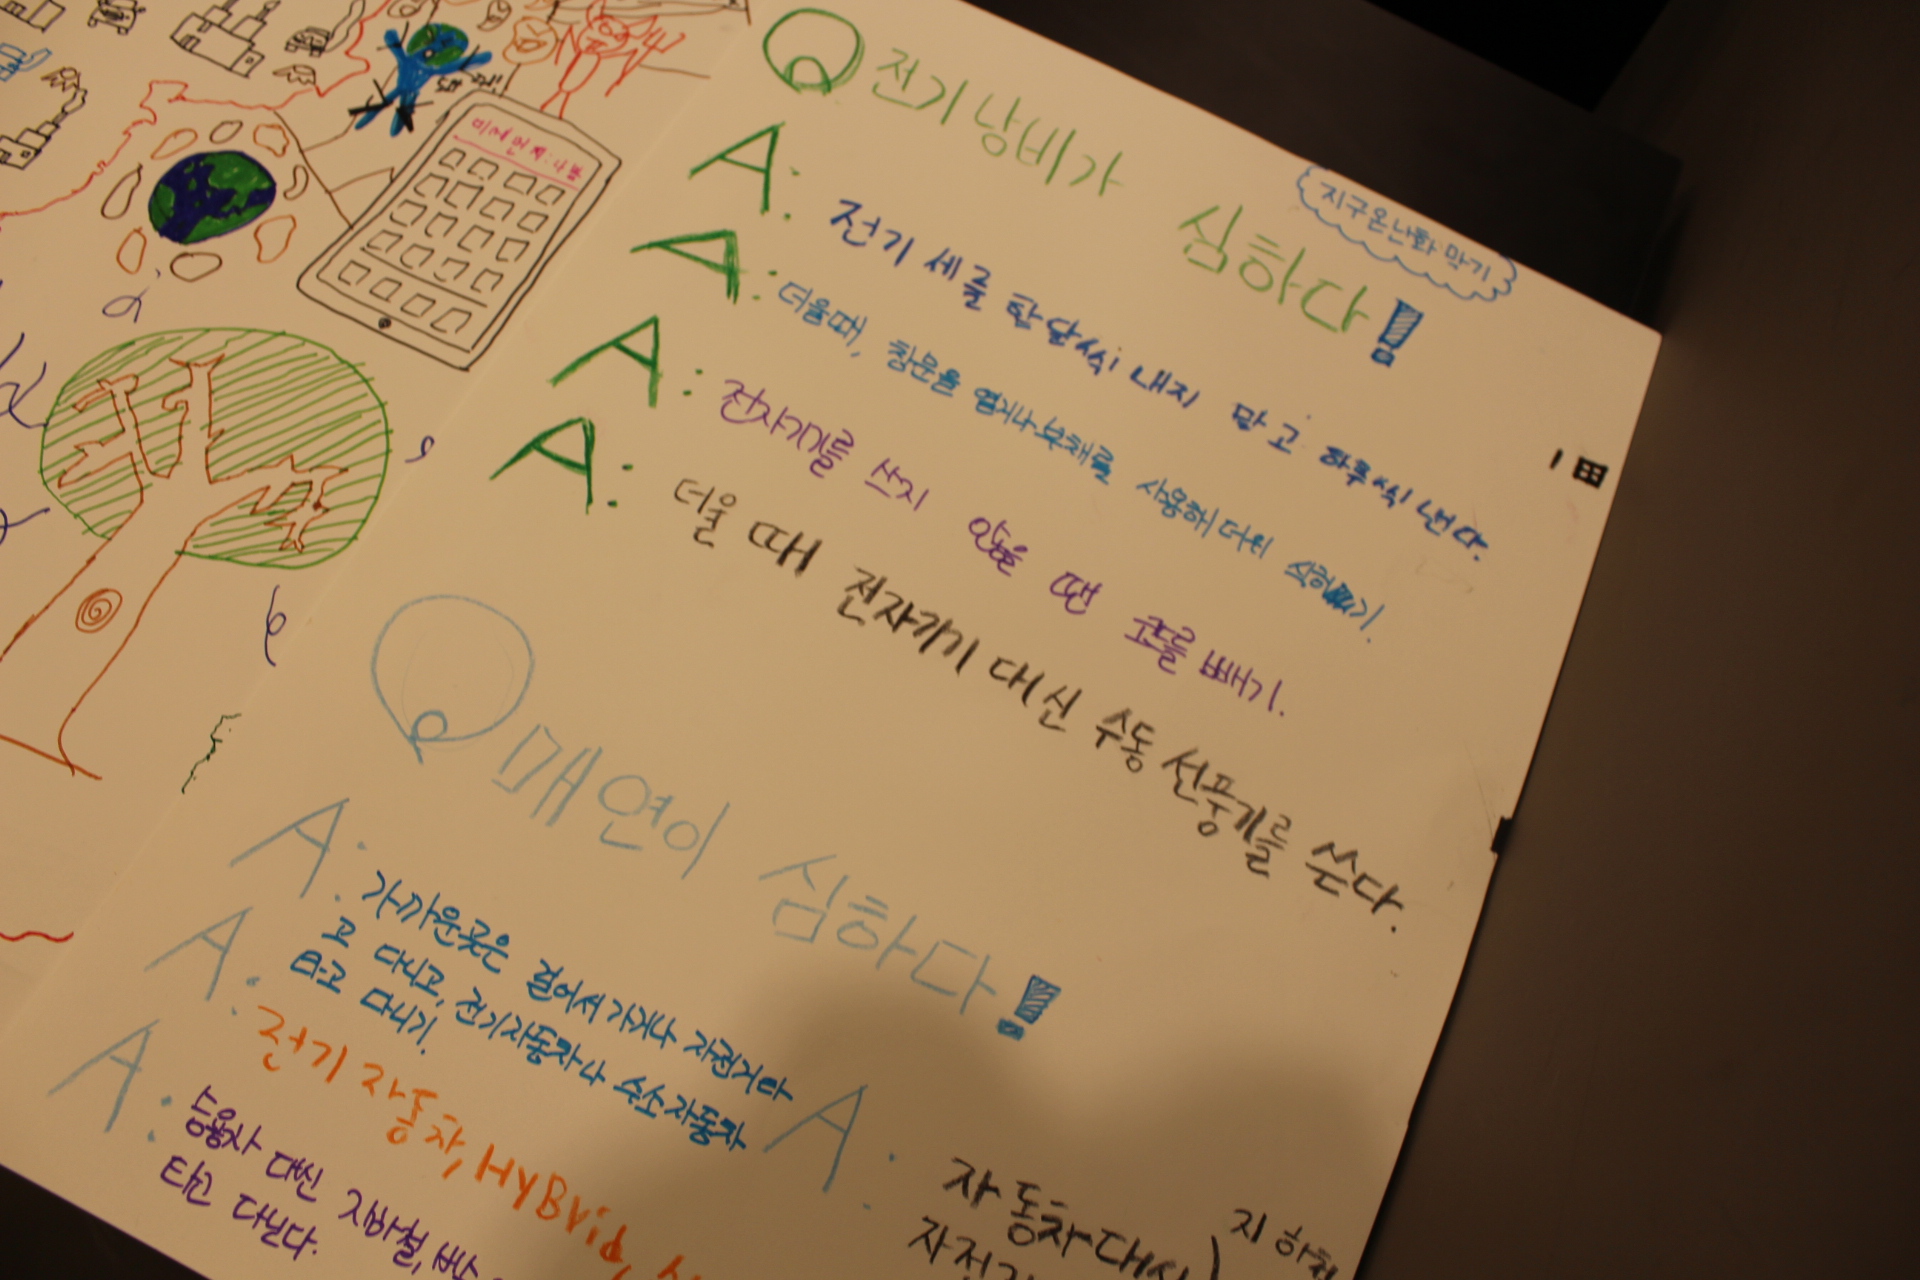 미세먼지:나쁨
Q 전기낭비가 심하다!
지구온난화 막기
A: 전기세를 한달씩 내지 말고 하루씩 낸다.
A: 더울때, 창문을 열거나 부채를 사용해 더위 식히기.
A: 전자기기를 쓰지 않을 땐 코드를 빼기.
A: 더울 때 전자기기 대신 수동 선풍기를 쓴다.
Q 매연이 심하다!
A: 가까운곳은 걸어서 가거나 자전거타
고 다니고, 전기자동차나 수소자동차
타고 다니기.
A: 전기자동차, HYBrid,
A: 승용차 대신
타고 다닌다.
A: 자동차대신